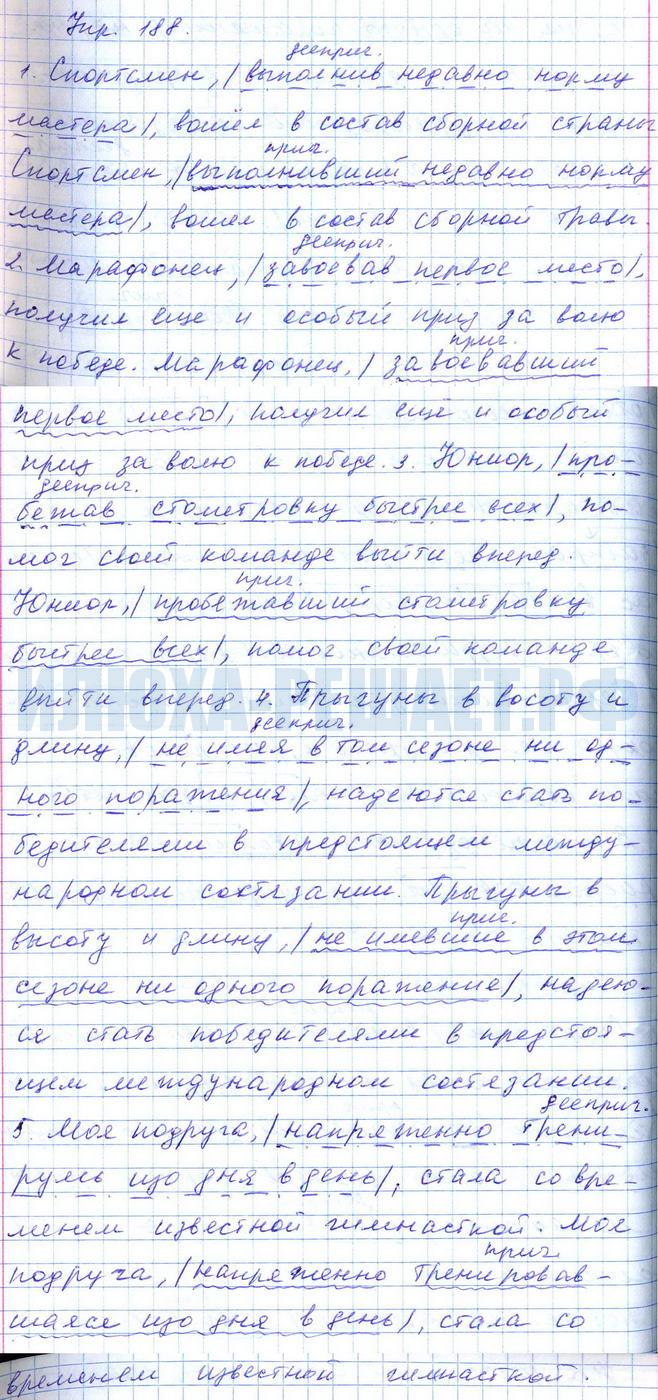 Упр. 188.
дееприч.
1. Спортсмен, /выполнив недавно норму
мастера/, вошёл в состав сборной страны
прич.
Спортсмен, /выполнивший недавно норму
мастера/, вошел в состав сборной
дееприч.
2. Марафонец, /завоевав первое место/,
получил еще и особый приз за волю
прич.
к победе. Марафонец, / завоевавший
первое место/, получил ещё и особый
приз за волю к победе. 3. Юниор, /про-
дееприч.
бежав стометровку быстрее всех/, по-
мог своей команде выйти вперед.
прич.
Юниор, / пробежавший стометровку
быстрее всех/, помог своей команде
выйти вперед. 4. Прыгуны в восоту и
дееприч.
длину, / не имея в том сезоне ни од-
ного поражения/, надеются стать по-
бедителями в предстоящем между-
народном состязании. Прыгуны в
прич.
высоту и длину, / не имевшие в этом
сезоне ни одного поражение/, надею-
ся стать победителями в предстоя-
щем международном состязании.
дееприч.
5. Моя подруга, / напряженно трени-
руясь изо дня в день/, стала со вре-
менем известной гимнасткой. Моя
прич.
подруга, /напряженно тренировав-
шаяся изо дня в день/, стала со
временем известной гимнасткой.
ИЛЮХА-РЕШАЕТ.РФ